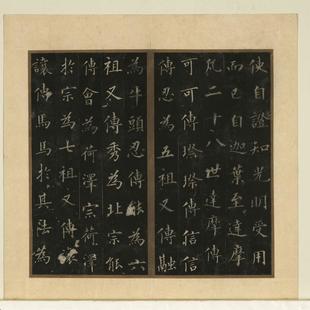 使自證知光明受用
而已自迦葉至達摩
凡二十八世達摩傳
可可傳璨璨傳信信
傳忍為五祖又傳融
為牛頭忍傳能為六
祖又傳秀為北宗能
傳會為荷澤宗荷澤
於宗為七祖又傳讓
讓傳馬馬於其法為